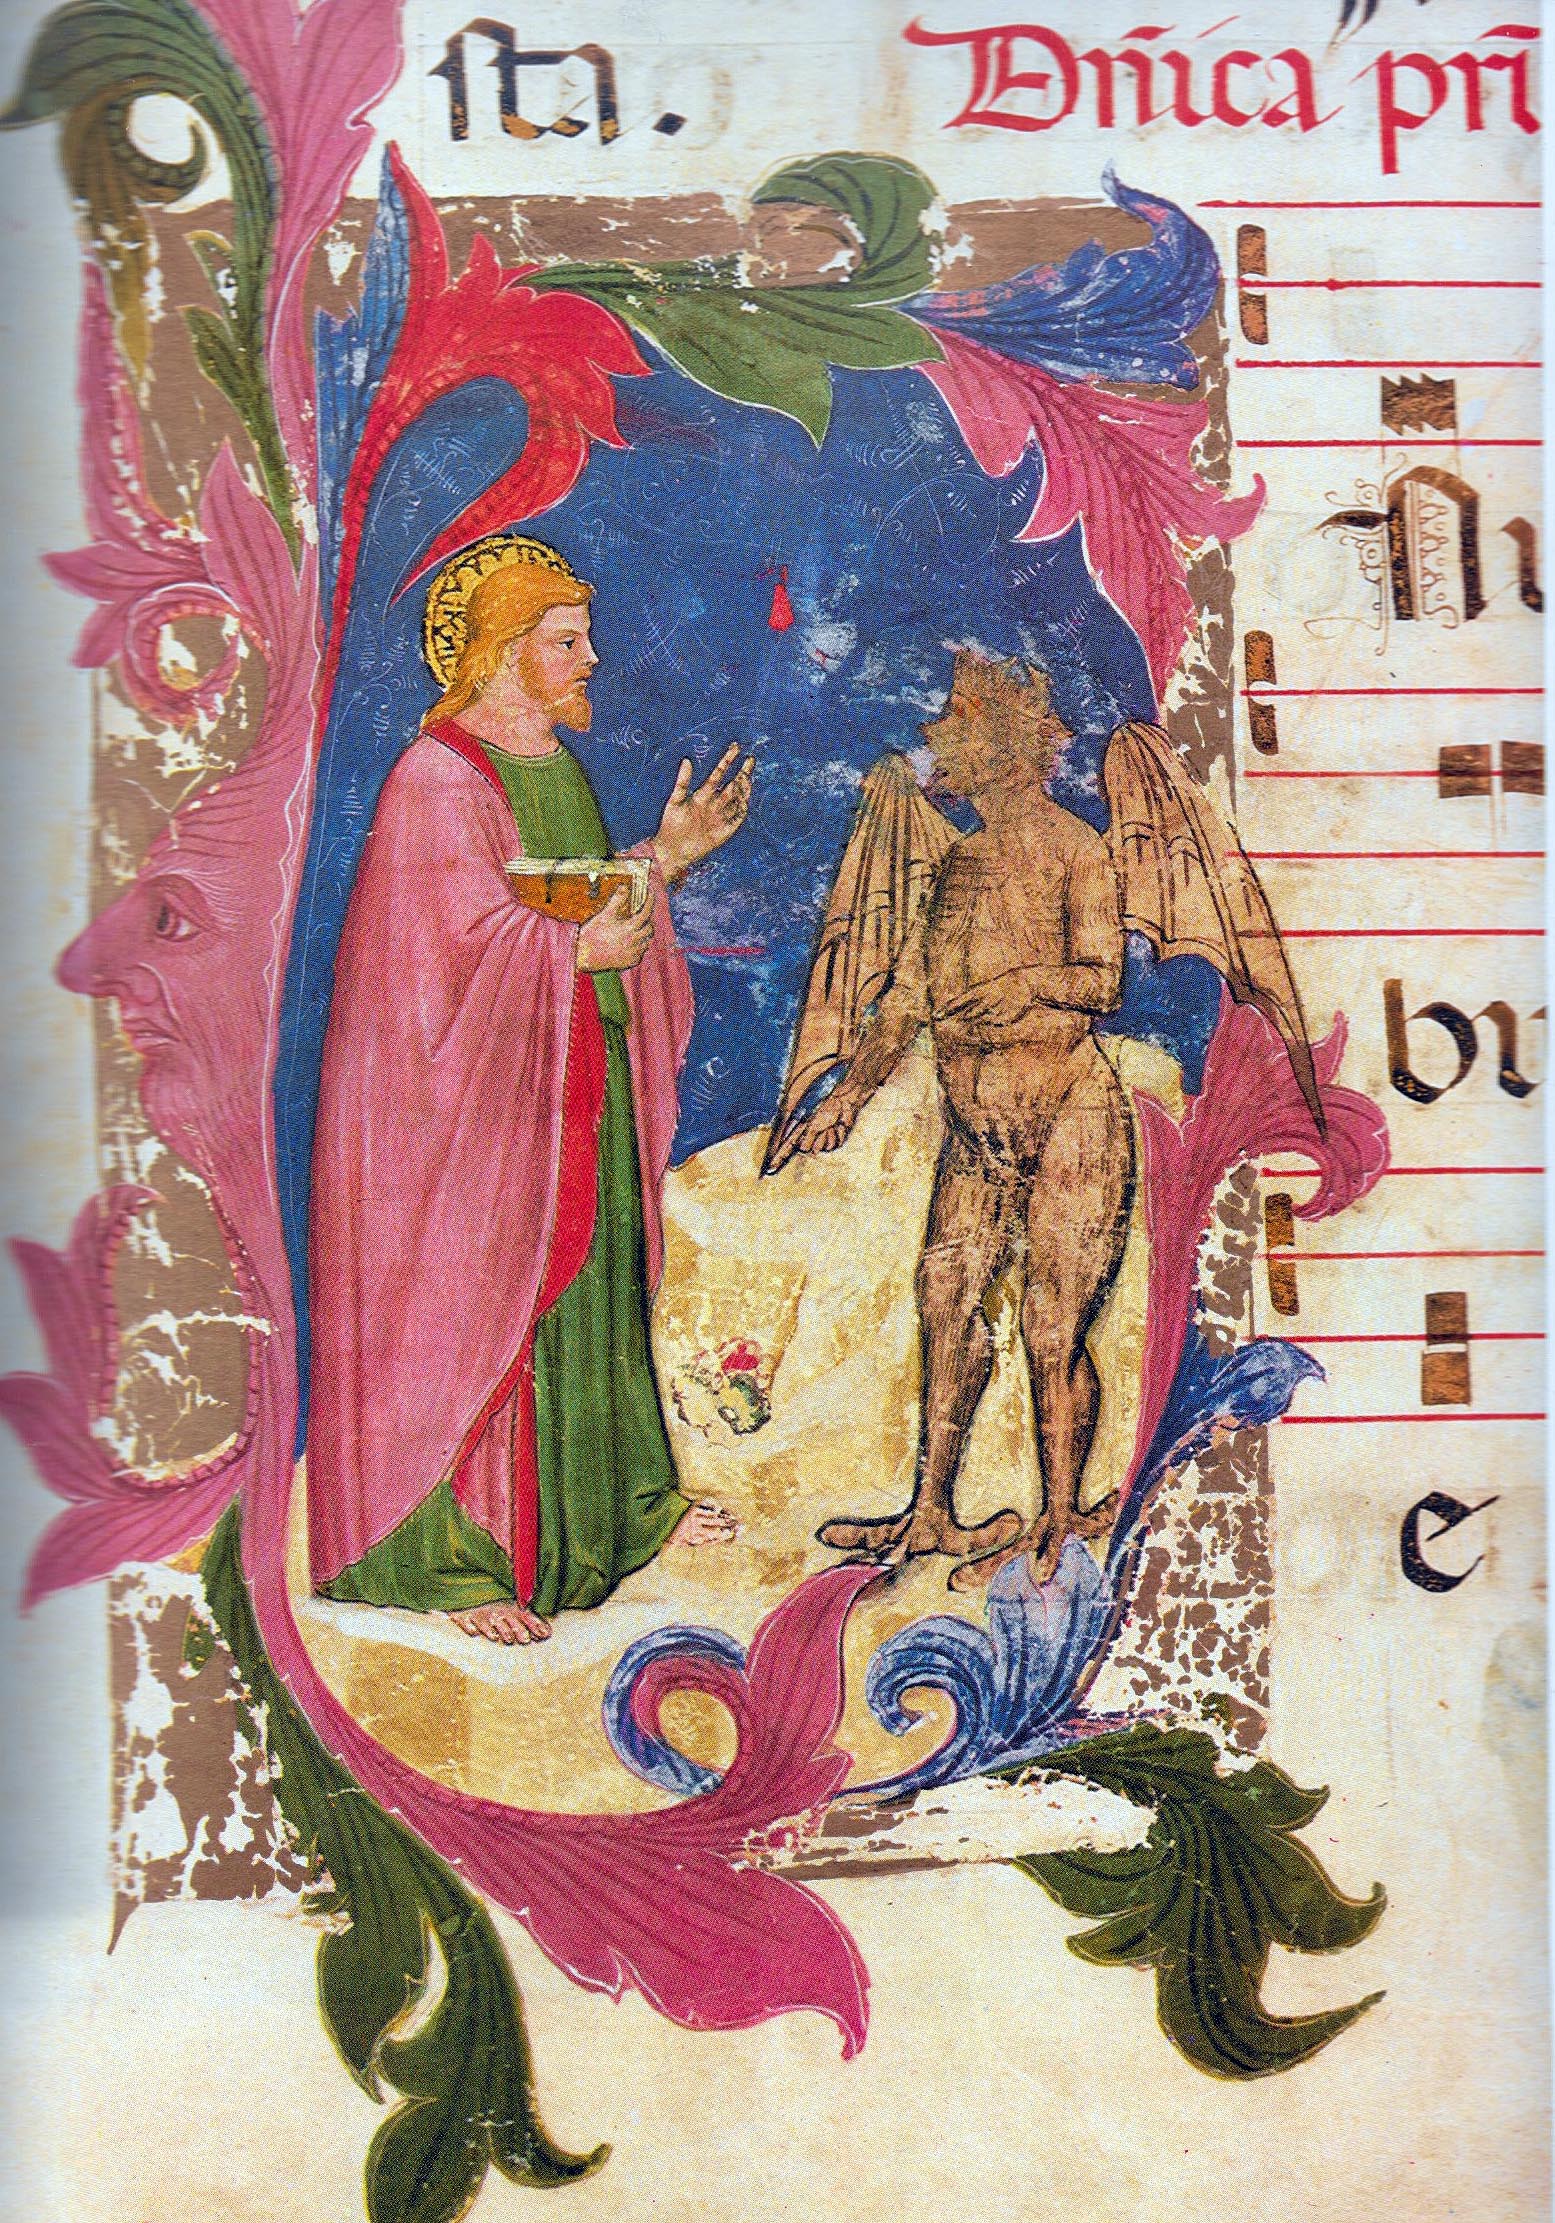 sta. Dñica prĩ
bu
e